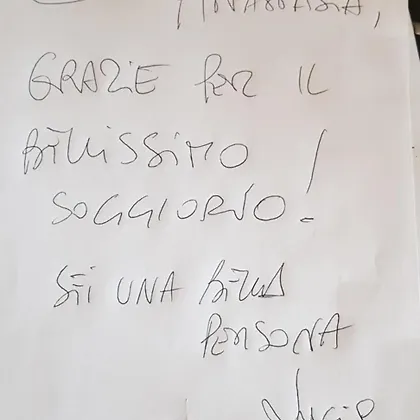 GRAZIE PER IL
BELLISSIMO
SOGGIORNO!
SEI UNA BELLA
PERSONA